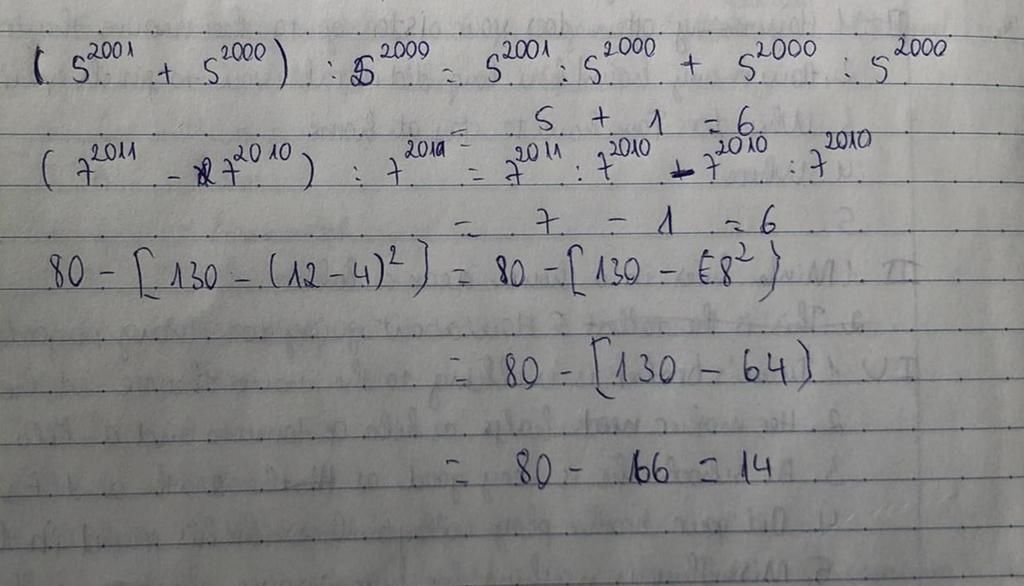 (5²⁰⁰¹ + 5²⁰⁰⁰) : 5²⁰⁰⁰ = 5²⁰⁰¹ : 5²⁰⁰⁰ + 5²⁰⁰⁰ : 5²⁰⁰⁰
= 5 + 1 = 6
(7²⁰¹¹ - 7²⁰¹⁰) : 7²⁰¹⁰ = 7²⁰¹¹ : 7²⁰¹⁰ - 7²⁰¹⁰ : 7²⁰¹⁰
= 7 - 1 = 6
80 - [130 - (12 - 4)²] = 80 - [130 - 8²]
= 80 - [130 - 64]
= 80 - 66 = 14